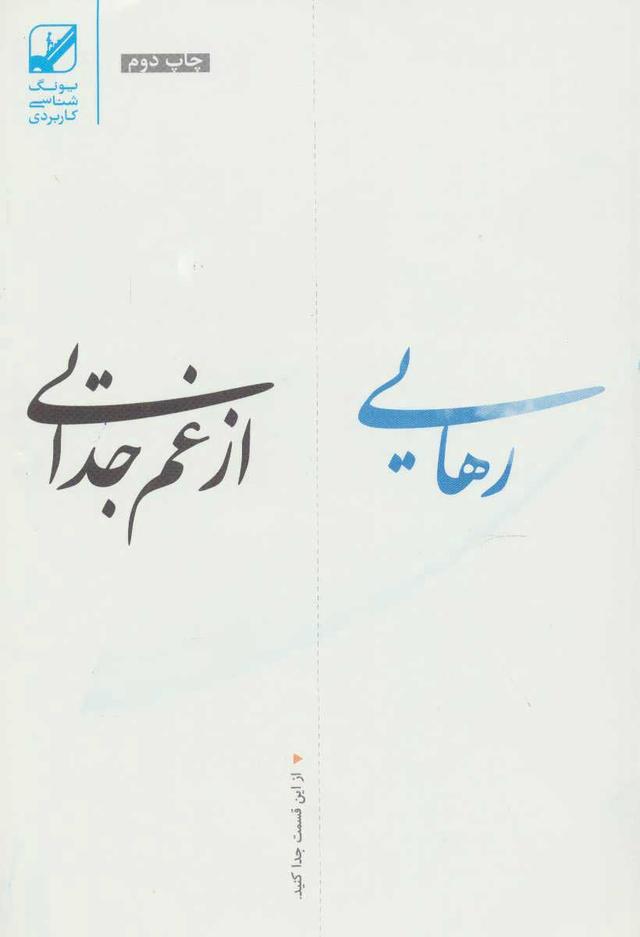 یونگ
شناسی
کاربردی
چاپ دوم
رهایی
از غم جدایی
از این قسمت جدا کنید.